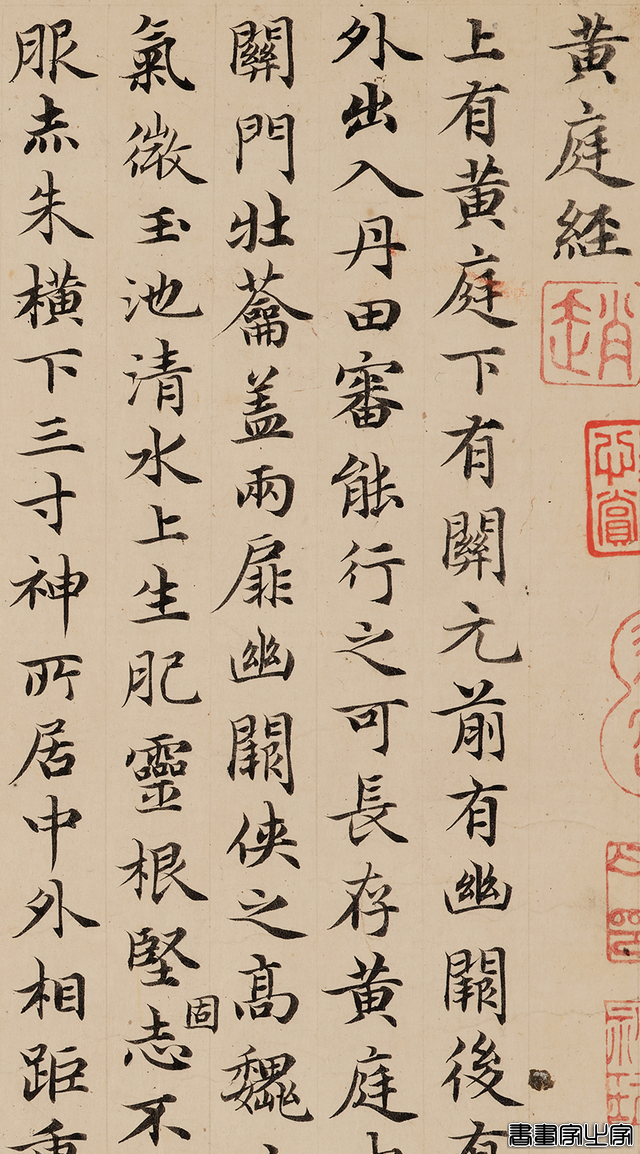 黄庭經
上有黄庭下有關元前有幽闕後有
外出入丹田審能行之可長存黄庭
關門壯蘥盖兩扉幽闕俠之高巍
氣微玉池清水上生肥靈根堅志不
固
服赤朱横下三寸神所居中外相距重
心賞